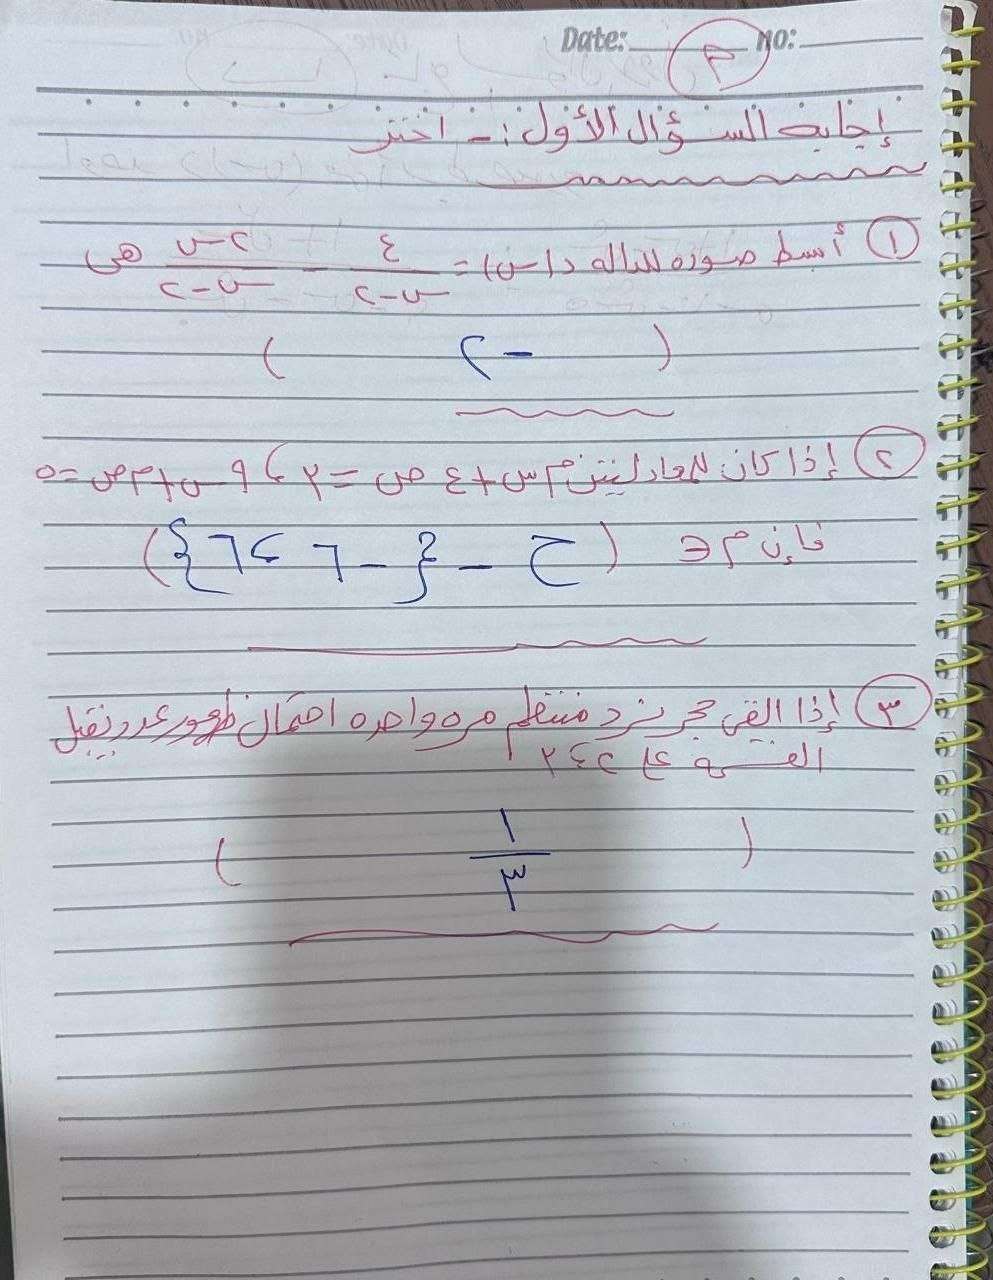 Date: ٣ NO:
إجابة السؤال الأول :- اختر
١ أبسط صورة للدالة د(س) = ٤/(س-٢) - ٢س/(س-٢) هى
( -٢ )
٢ إذا كان للمعادلتين م س + ٤ ص = ٢ ، ٩ س + م ص = ٥
فإن م ∈ ( ح - {-٦ ، ٦} )
٣ إذا القى حجر نرد منتظم مره واحده احتمال ظهور عدد يقبل
القسمة على ٢ ، ٣
( ١/٣ )